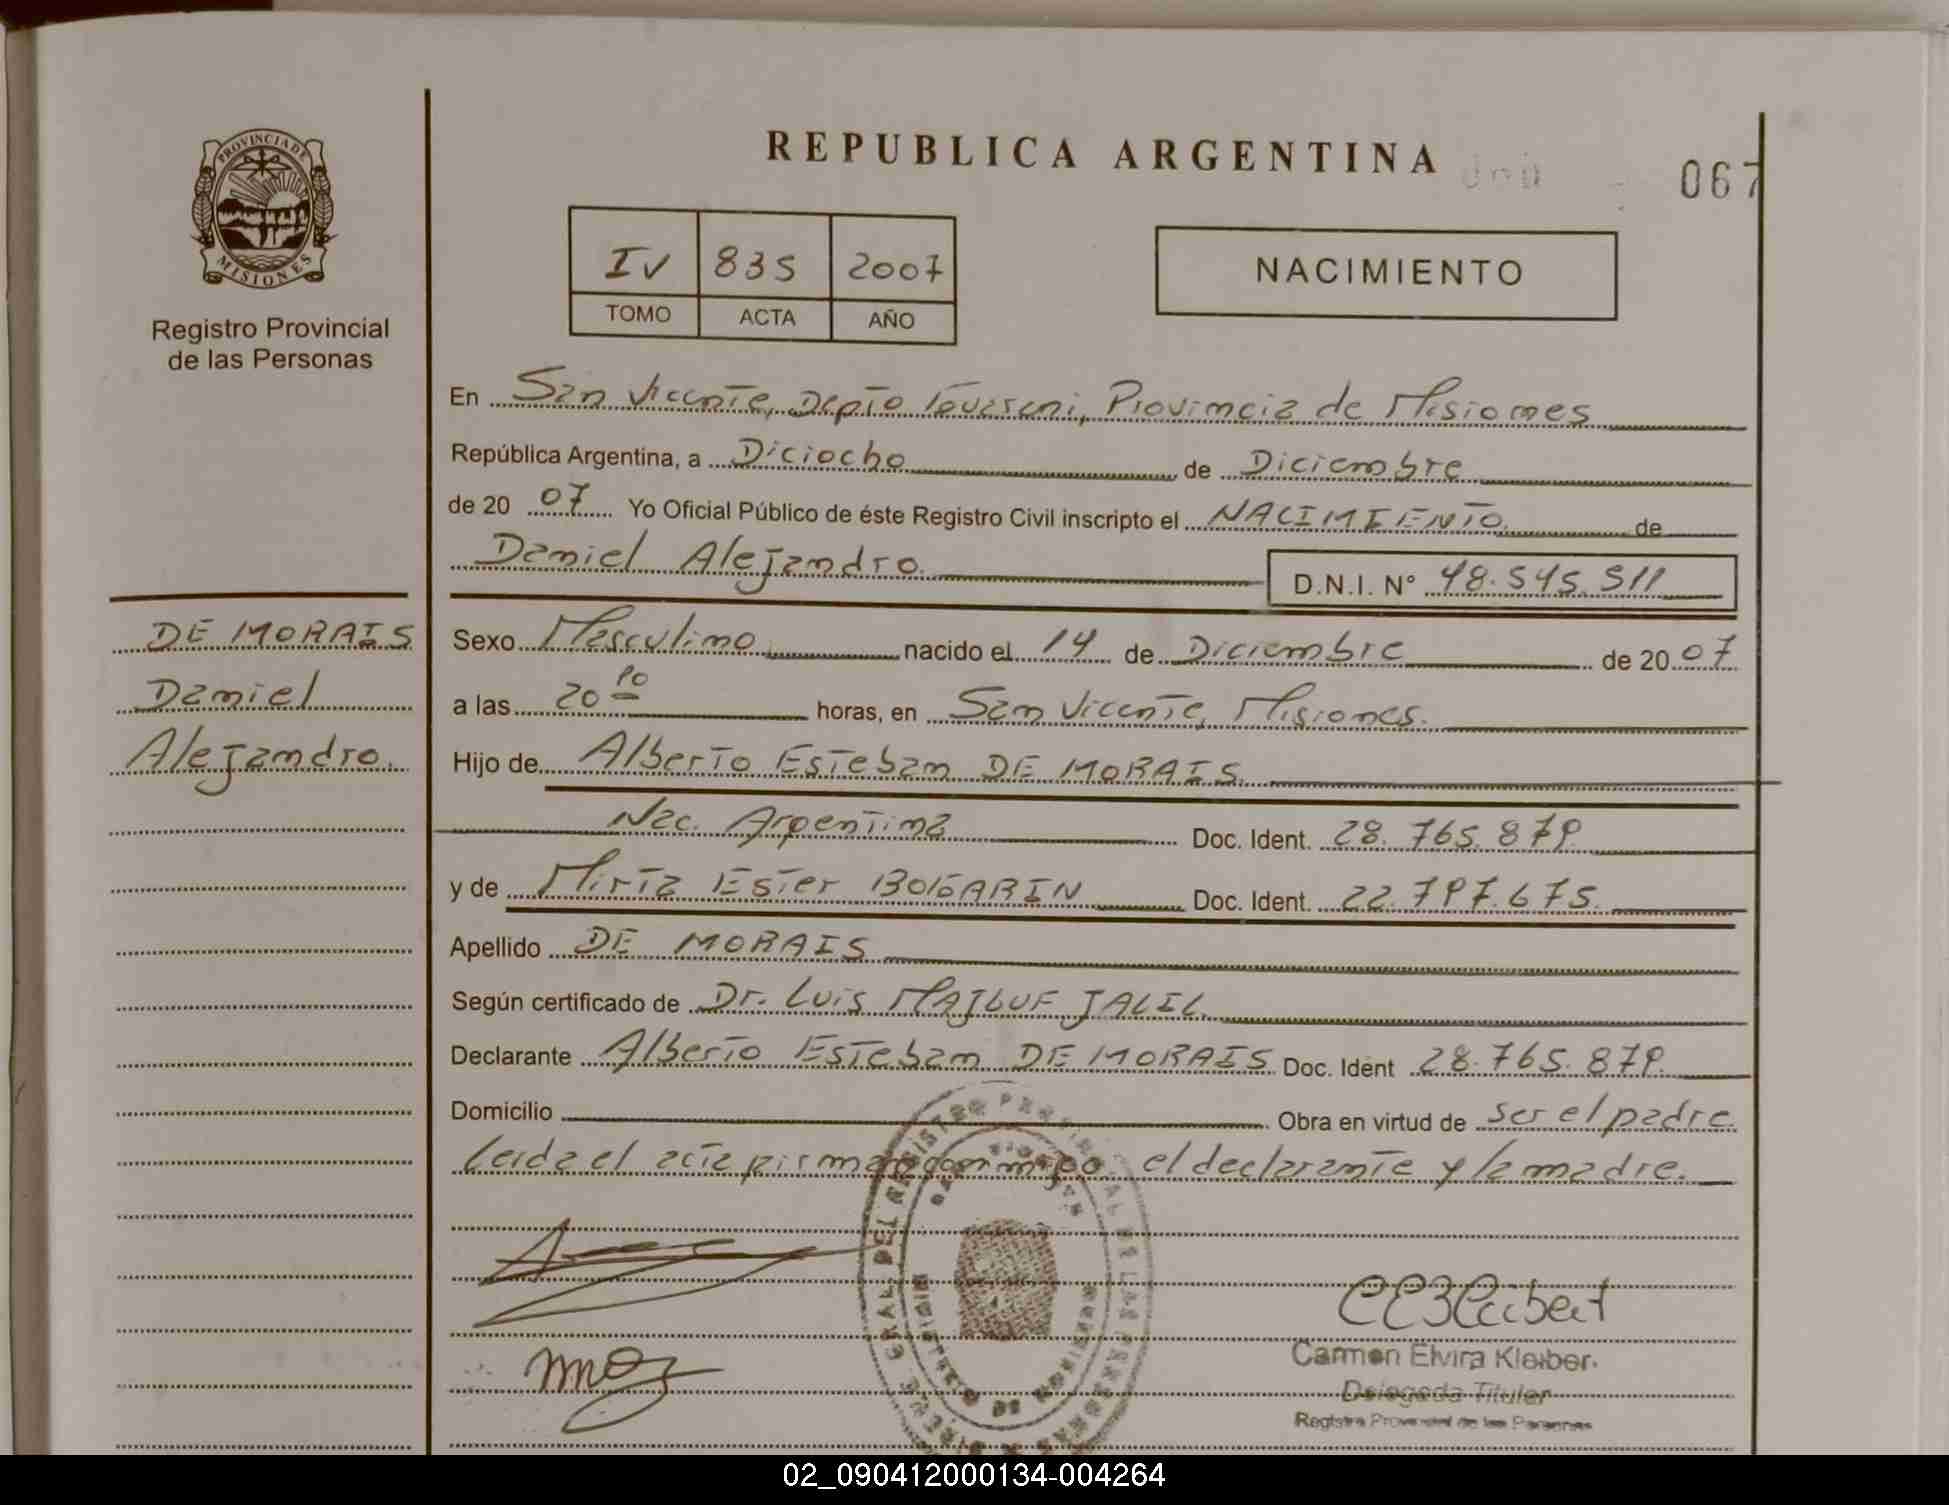 PROVINCIA DE
MISIONES
Registro Provincial
de las Personas
DE MORAIS
Daniel
Alejandro.
REPUBLICA ARGENTINA
067
IV 835 2007
TOMO ACTA AÑO
NACIMIENTO
En San Vicente, Depto Guarani, Provincia de Misiones
República Argentina, a Diciocho de Diciembre
de 20 07 Yo Oficial Público de éste Registro Civil inscripto el NACIMIENTO de
Daniel Alejandro. D.N.I. N° 48.545.511
Sexo Masculino nacido el 14 de Diciembre de 20 07
a las 20 10 horas, en San Vicente, Misiones.
Hijo de Alberto Esteban DE MORAIS.
Nac. Argentina Doc. Ident. 28.765.879.
y de Mirta Ester Doc. Ident. 22.797.675.
Apellido DE MORAIS
Según certificado de Dr. Luis MAJLUF JALIL.
Declarante Alberto Esteban DE MORAIS Doc. Ident 28.765.879.
Domicilio Obra en virtud de ser el padre.
Leida el acta firman conmigo el declarante y la madre.
Carmen Elvira Kleiber.
Delegada Titular
Registro Provincial de las Personas
02_090412000134-004264